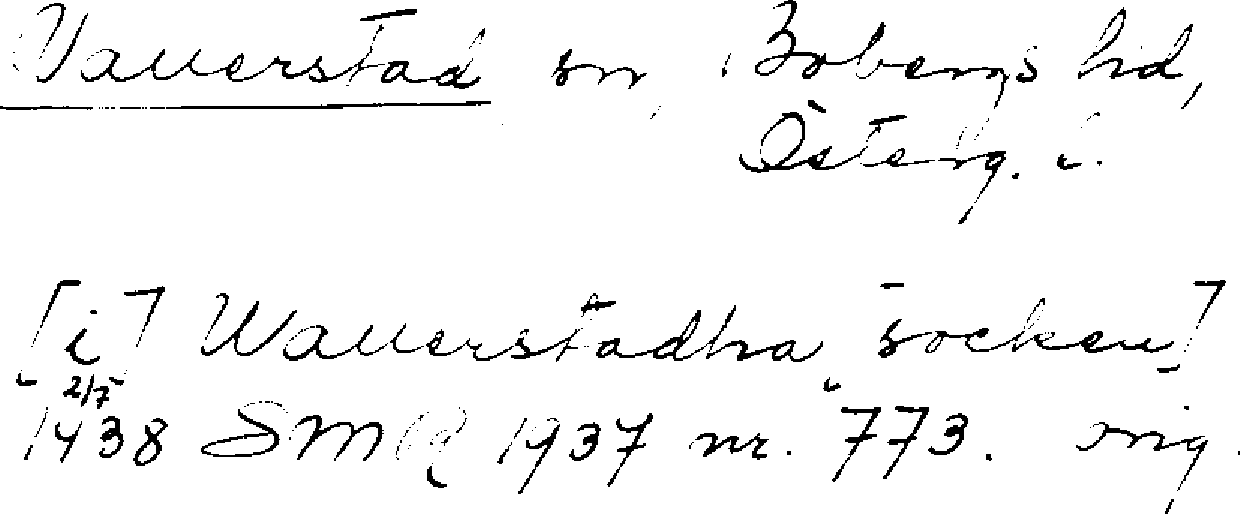 Vallerstad sn, Bobergs hd,
Österg. l.
[i] Wallerstadha [socken]
2/7
1438 SMR 1937 nr. 773. orig.